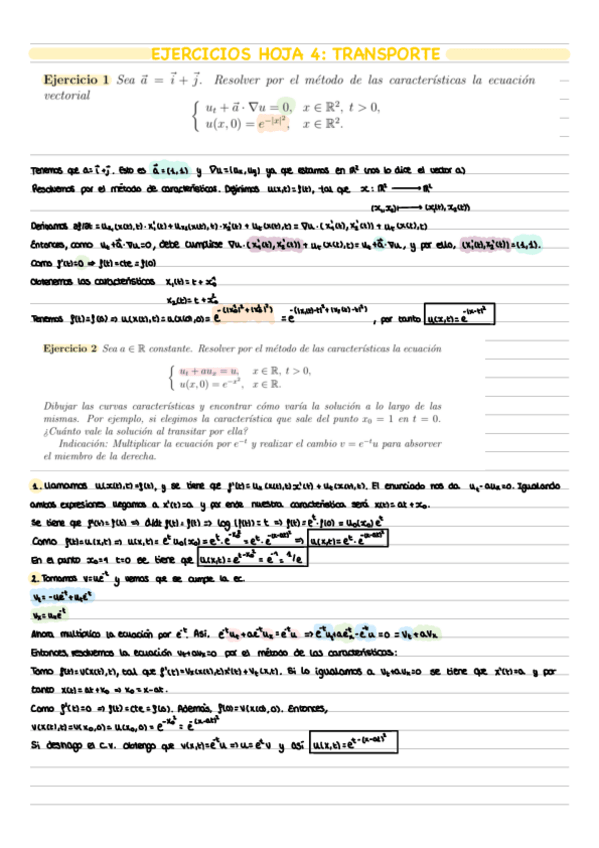 EJERCICIOS HOJA 4: TRANSPORTE
Ejercicio 1 Sea a⃗ = i⃗ + j⃗. Resolver por el método de las características la ecuación
vectorial
{ u_t + a⃗ · ∇u = 0, x ∈ ℝ², t > 0,
u(x, 0) = e^{-|x|²}, x ∈ ℝ².
Tenemos que a=i⃗+j⃗. Esto es a⃗=(1,1) y ∇u=(u_x, u_y) ya que estamos en ℝ² (nos lo dice el vector a)
Resolvemos por el método de características. Definimos u(x,t)=f(t), tal que x: ℝ² → ℝ²
Entonces, como u_t+a⃗·∇u=0, debe cumplirse ∇u·(x₁'(t), x₂'(t)) + u_t(x,t) = u_t+a⃗·∇u, y por ello, (x₁'(t), x₂'(t))=(1,1).
Como f'(t)=0 ⇒ f(t)=cte=f(0)
Obtenemos las características x₁(t)=t+x₁⁰
x₂(t)=t+x₂⁰
Tenemos f(t)=f(0) ⇒ u(x(t),t)=u(x(0),0)= , por tanto
Ejercicio 2 Sea a ∈ ℝ constante. Resolver por el método de las características la ecuación
{ u_t + au_x = u, x ∈ ℝ, t > 0,
u(x, 0) = e^{-x²}, x ∈ ℝ.
Dibujar las curvas características y encontrar cómo varía la solución a lo largo de las
mismas. Por ejemplo, si elegimos la característica que sale del punto x₀ = 1 en t = 0.
¿Cuánto vale la solución al transitar por ella?
Indicación: Multiplicar la ecuación por e^{-t} y realizar el cambio v = e^{-t}u para absorber
el miembro de la derecha.
1. Llamamos u(x(t),t)=f(t), y se tiene que f'(t)=u_x(x(t),t)x'(t)+u_t(x(t),t). El enunciado nos da Igualando
ambas expresiones llegamos a x'(t)=a y por ende nuestra característica será x(t)=at+x₀.
Se tiene que f'(t)=f(t) ⇒ ⇒ log(f(t))=t ⇒ f(t)=e^t·f(0)=u₀(x₀)e^t
Como f(t)=u(x,t) ⇒ u(x,t)=e^t u₀(x₀)=e^t·e^{-x₀²}=e^t·e^{-(x-at)²} ⇒ u(x,t)=e^t·e^{-(x-at)²}
En el punto x₀=1 t=0 se tiene que u(x,t)=e^{t-x₀²}=e^{-1}=1/e
2. Tomamos v=ue^{-t} y vemos que se cumple la ec.
v_t=-ue^{-t}+u_te^{-t}
v_x=u_xe^{-t}
Ahora multiplico la ecuación por e^{-t}. Así, e^{-t}u_t+ae^{-t}u_x=e^{-t}u ⇒ e^{-t}u_t+ae^{-t}u_x-e^{-t}u=0=v_t+av_x
Entonces, resolvemos la ecuación v_t+av_x=0 por el método de las características:
Tomo f(t)=v(x(t),t), tal que f'(t)=v_x(x(t),t)x'(t)+v_t(x,t). Si lo igualamos a v_t+av_x=0 se tiene que x'(t)=a y por
tanto x(t)=at+x₀ ⇒ x₀=x-at.
Como f'(t)=0 ⇒ f(t)=cte=f(0). Además, f(0)=v(x(0),0). Entonces,
v(x(t),t)=v(x₀,0)=u(x₀,0)=e^{-x₀²}=e^{-(x-at)²}
Si deshago el c.v. obtengo que v(x,t)=e^{-t}u ⇒ u=e^t v y así u(x,t)=e^{t-(x-at)²}